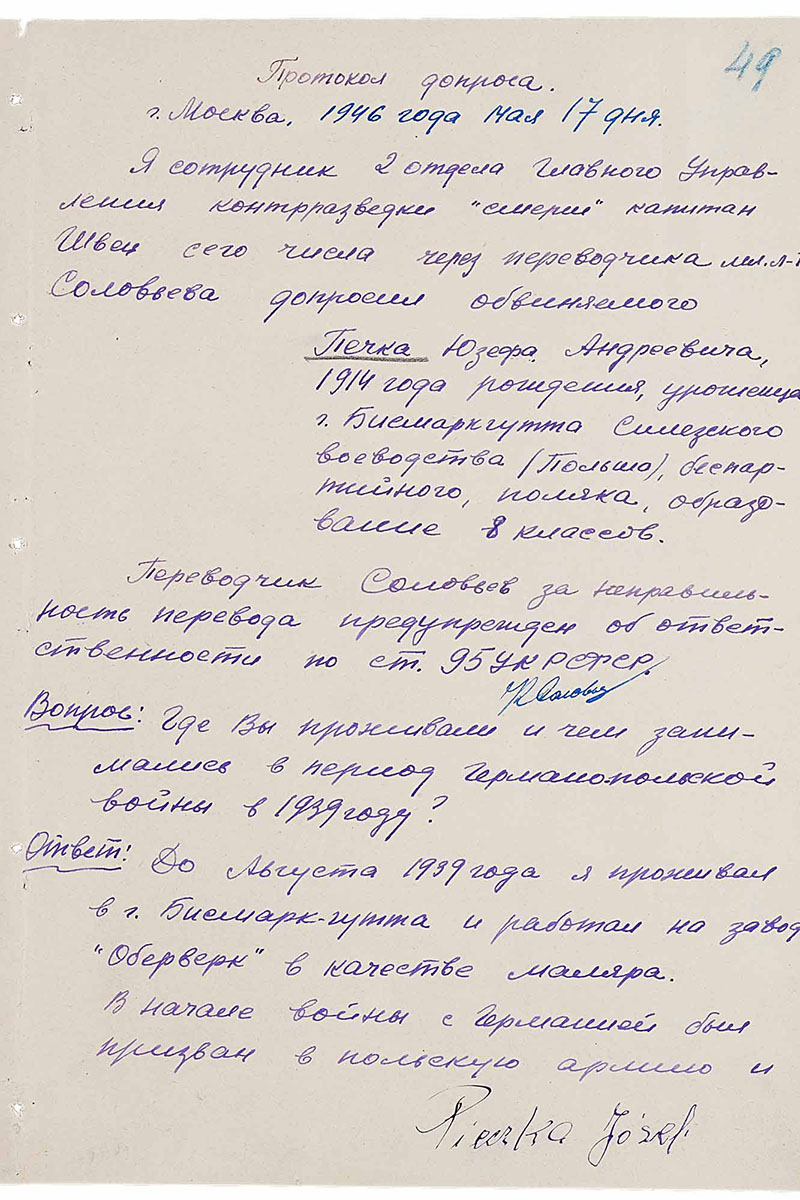 49
Протокол допроса.
г. Москва, 1946 года мая 17 дня.
Я сотрудник 2 отдела Главного Управ-
ления контрразведки "смерш" капитан
Швец сего числа через переводчика мл. л-т
Соловьева допросил обвиняемого
Печка Юзефа Андреевича,
1914 года рождения, уроженца
г. Бисмаркгутта Силезского
воеводства (Польша), беспар-
тийного, поляка, образо-
вание 8 классов.
Переводчик Соловьев за неправиль-
ность перевода предупрежден об ответ-
ственности по ст. 95 УК РСФСР.
Вопрос: Где Вы проживали и чем зани-
мались в период Германо-польской
войны в 1939 году?
Ответ: До Августа 1939 года я проживал
в г. Бисмарк-гутта и работал на завод
"Оберверк" в качестве маляра.
В начале войны с Германией был
призван в польскую армию и
Pieczka Józef